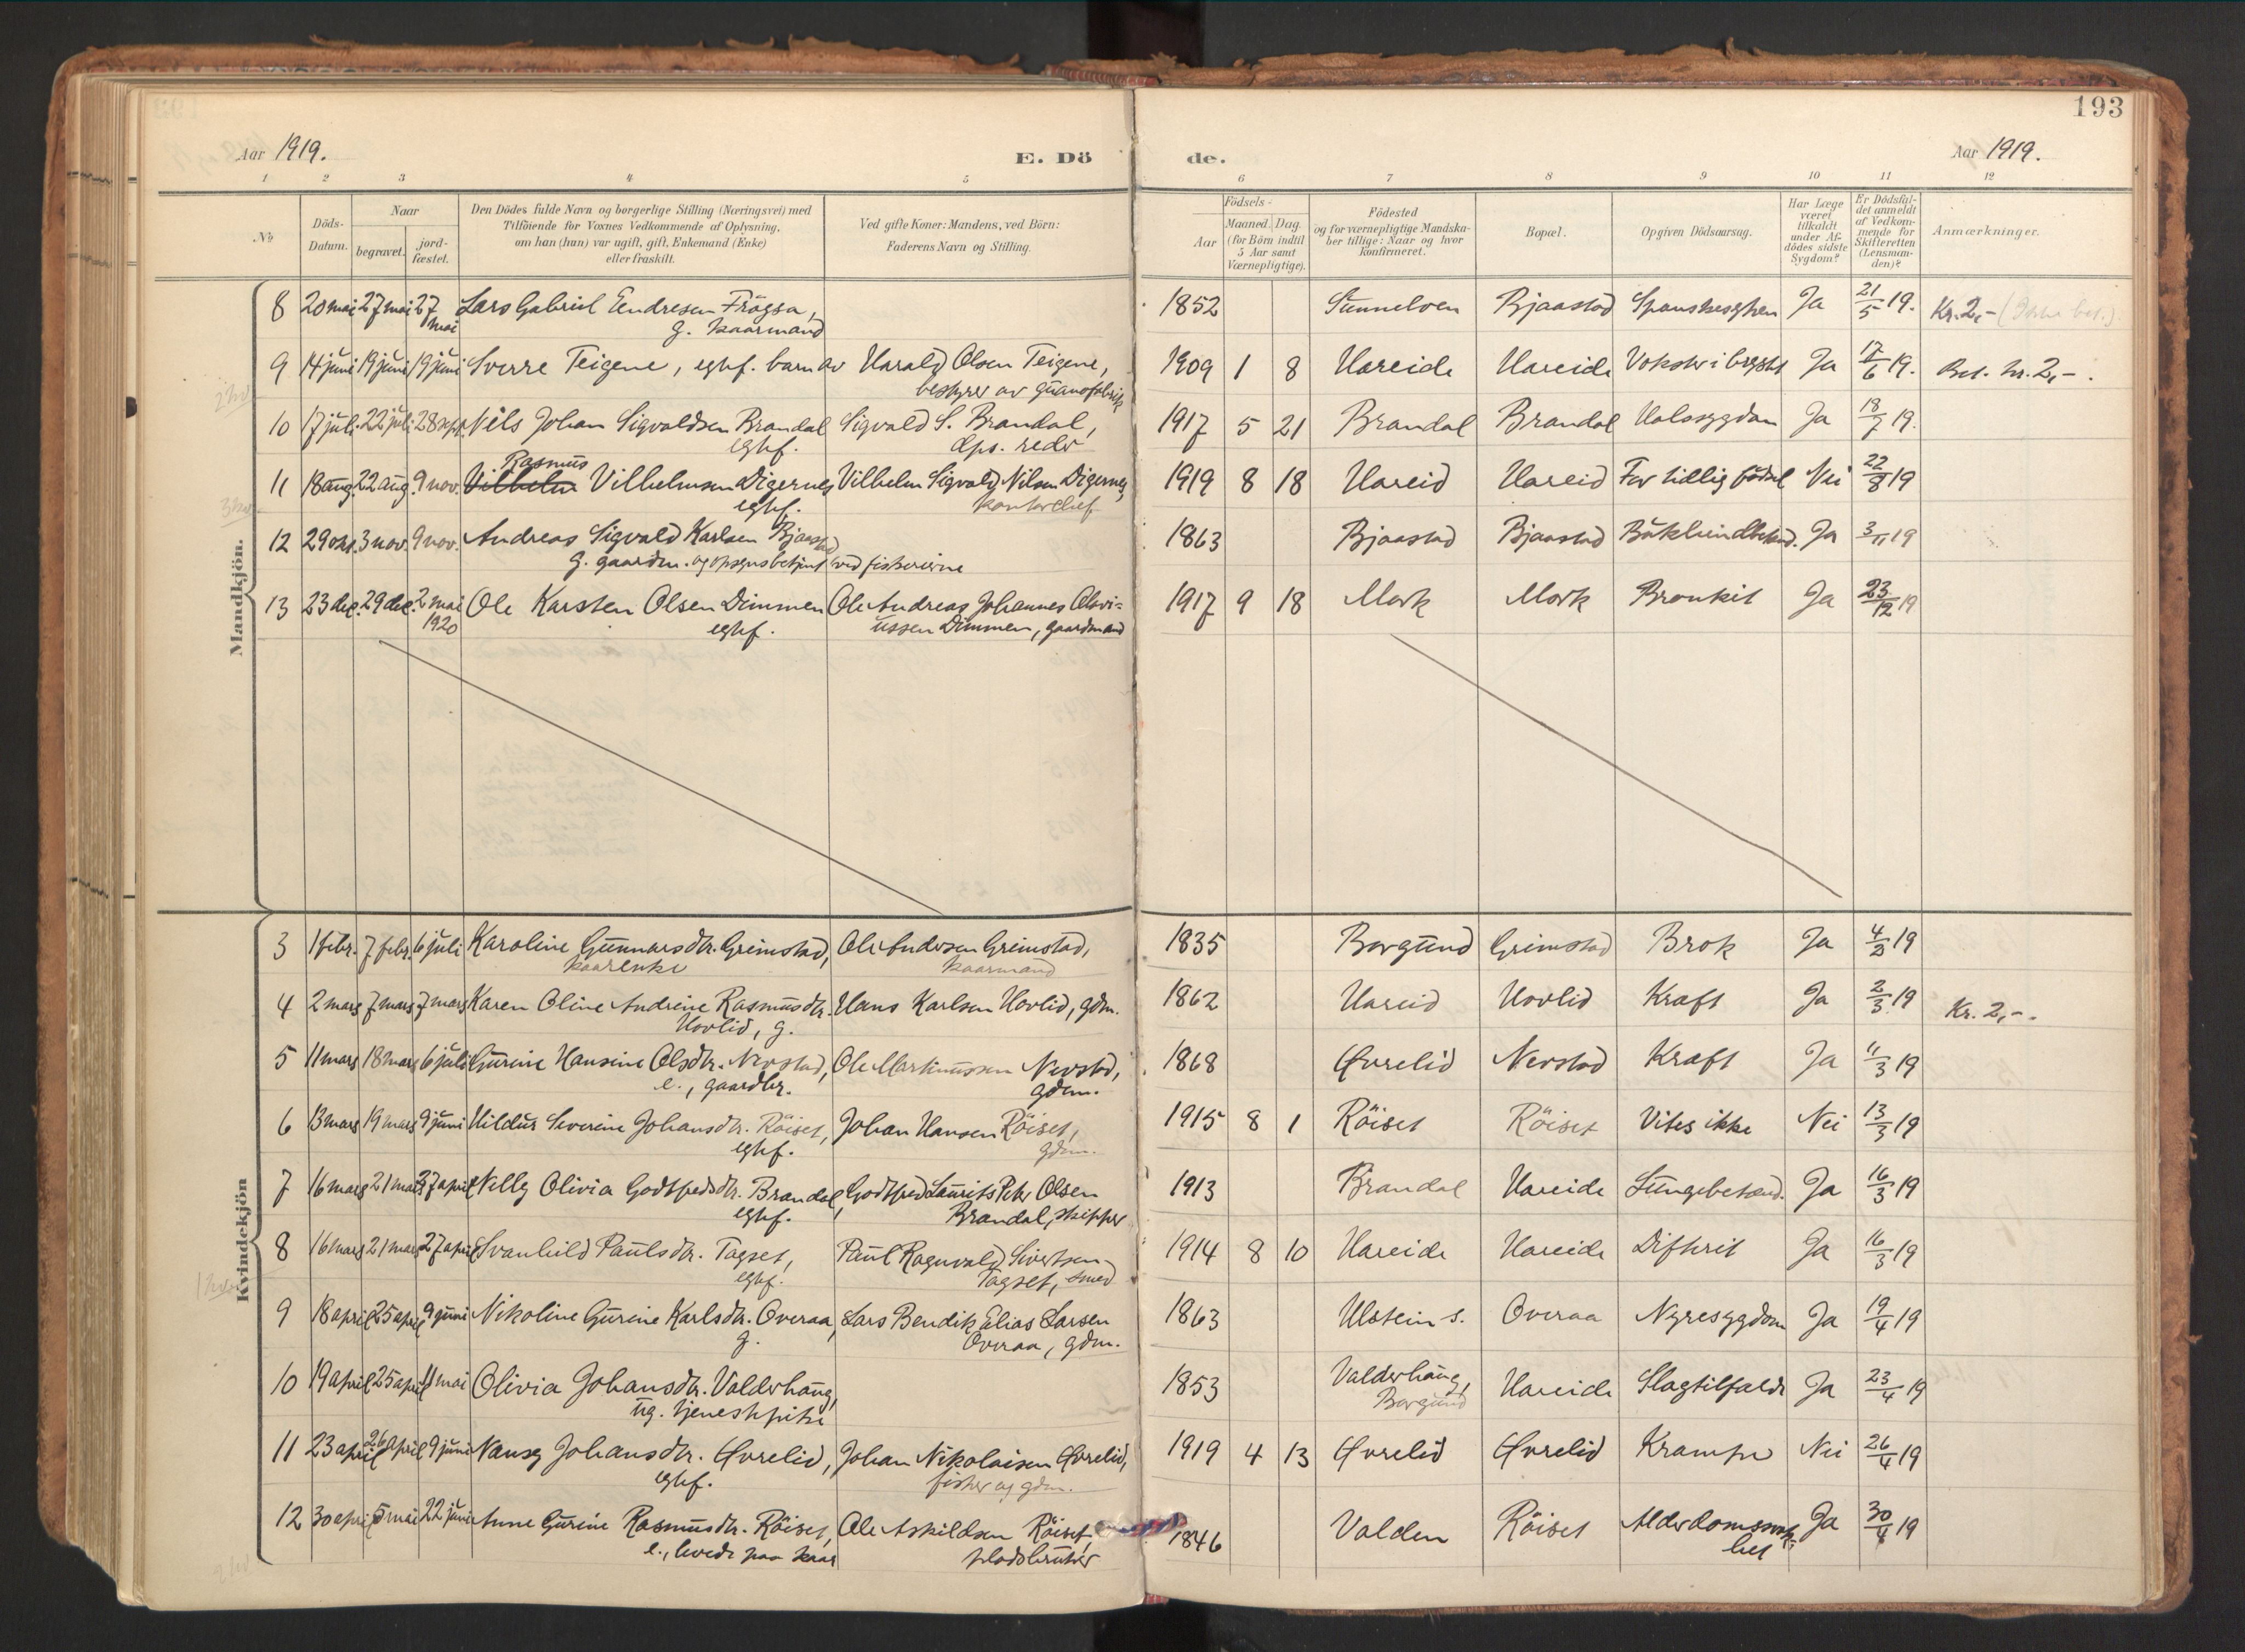 193
Aar 1919. E. Dö de. Aar 1919.
1 2 3 4 5 6 7 8 9 10 11 12
№ Döds-Datum. Naar begravet. jord-fæstet. Den Dödes fulde Navn og borgerlige Stilling (Næringsvei) med Tilföiende for Voxnes Vedkommende af Oplysning, om han (hun) var ugift, gift, Enkemand (Enke) eller fraskilt. Ved gifte Koner: Mandens, ved Börn: Faderens Navn og Stilling. Födsels- Aar Maaned. Dag. (for Börn indtil 5 Aar samt Værnepligtige). Födested og for værnepligtige Mandskaber tillige: Naar og hvor Konfirmeret. Bopæl. Opgiven Dödsaarsag. Har Læge været tilkaldt under Afdödes sidste Sygdom? Er Dödsfaldet anmeldt af Vedkommende for Skifteretten (Lensmanden)? Anmærkninger.
Mandkjön.
8 20 mai 27 mai 27 mai Lars Gabriel Endresen Frögsa, 1852 Sunnelven Bjaastad Ja 21/5 19. Kr. 2,-
g. kaarmand
9 14 juni 19 juni 19 juni Sverre Teigene, eghf. barn av Harald Olsen Teigene, 1909 1 8 Hareide Hareide Vokster i brystet Ja 17/6 19. Bet. kr. 2,-.
bestyrer av guanofabrik
10 17 juli 22 juli 28 sept. Nils Johan Sigvaldsen Brandal Sigvald S. Brandal, 1917 5 21 Brandal Brandal Halssygdom Ja 18/7 19.
eghf. dps. reder
Rasmus
11 18 aug. 22 aug. 9 nov. Vilhelm Vilhelmsen Digernes Vilhelm Sigvald Nilsen Digernes, 1919 8 18 Hareid Hareid For tidlig födsel Nei 22/8 19
eghf. kontorchef
12 29 okt. 3 nov. 9 nov. Andreas Sigvald Karlsen Bjaastad 1863 Bjaastad Bjaastad Ja 3/11 19
g. gaardm. og opsynsbetjent ved fiskerierne
13 23 dec. 29 dec. 2 mai 1920 Ole Karsten Olsen Dimmen Ole Andreas Johannes Olavi= 1917 9 18 Mork Mork Bronkit Ja 23/12 19
eghf. ussen Dimmen, gaardmand
Kvindekjön
3 1 febr. 7 febr. 6 juli Karoline Gunnarsdtr. Grimstad, Ole Andersen Grimstad, 1835 Borgund Grimstad Brok Ja 4/2 19
kaarenke kaarmand
4 2 mars 7 mars 7 mars Karen Oline Andrine Rasmusdtr. Hans Karlsen Hovlid, gdm. 1862 Hareid Hovlid Kræft Ja 2/3 19 Kr. 2,-.
Hovlid, g.
5 11 mars 18 mars 6 juli Gurine Hansine Olsdtr. Nevstad, Ole Martinussen Nevstad, 1868 Øvrelid Nevstad Kræft Ja 11/3 19
e., gaardbr. gdm.
6 13 mars 19 mars 9 juni Hildur Severine Johansdtr. Röiset, Johan Hansen Röiset, 1915 8 1 Röiset Röiset Vites ikke Nei 13/3 19
eghf. gdm.
7 16 mars 21 mars 27 april Nelly Olivia Godtfredsdtr. Brandal, Godtfred Laurits Peter Olsen 1913 Brandal Hareide Lungebetænd. Ja 16/3 19
eghf. Brandal, skipper
8 16 mars 21 mars 27 april Svanhild Paulsdtr. Tagset, Paul Ragnvald Sivertsen 1914 8 10 Hareide Hareide Difterit Ja 16/3 19
eghf. Tagset, smed
9 18 april 25 april 9 juni Nikoline Gurine Karlsdtr. Overaa, Lars Bendik Elias Larsen 1863 Ulstein s. Overaa Nyresygdom Ja 19/4 19
g. Overaa, gdm.
10 19 april 25 april 11 mai Olivia Johansdtr. Valderhaug, 1853 Valderhaug, Hareide Slagtilfælde Ja 23/4 19
ug. tjenestpike Borgund
11 23 april 26 april 9 juni Nansy Johansdtr. Øvrelid, Johan Nikolaisen Øvrelid, 1919 4 13 Øvrelid Øvrelid Krampe Nei 26/4 19
eghf. fisker og gdm.
12 30 april 5 mai 22 juni Anne Gurine Rasmusdtr. Röiset, Ole Askildsen Röiset, 1846 Valden Röiset Alderdomssvak- Ja 30/4 19
e., levede paa kaar pladsbruker het